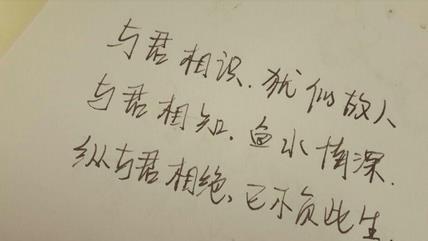 与君相识.犹似故人
与君相知.鱼水情深.
纵与君相绝、已不负此生.